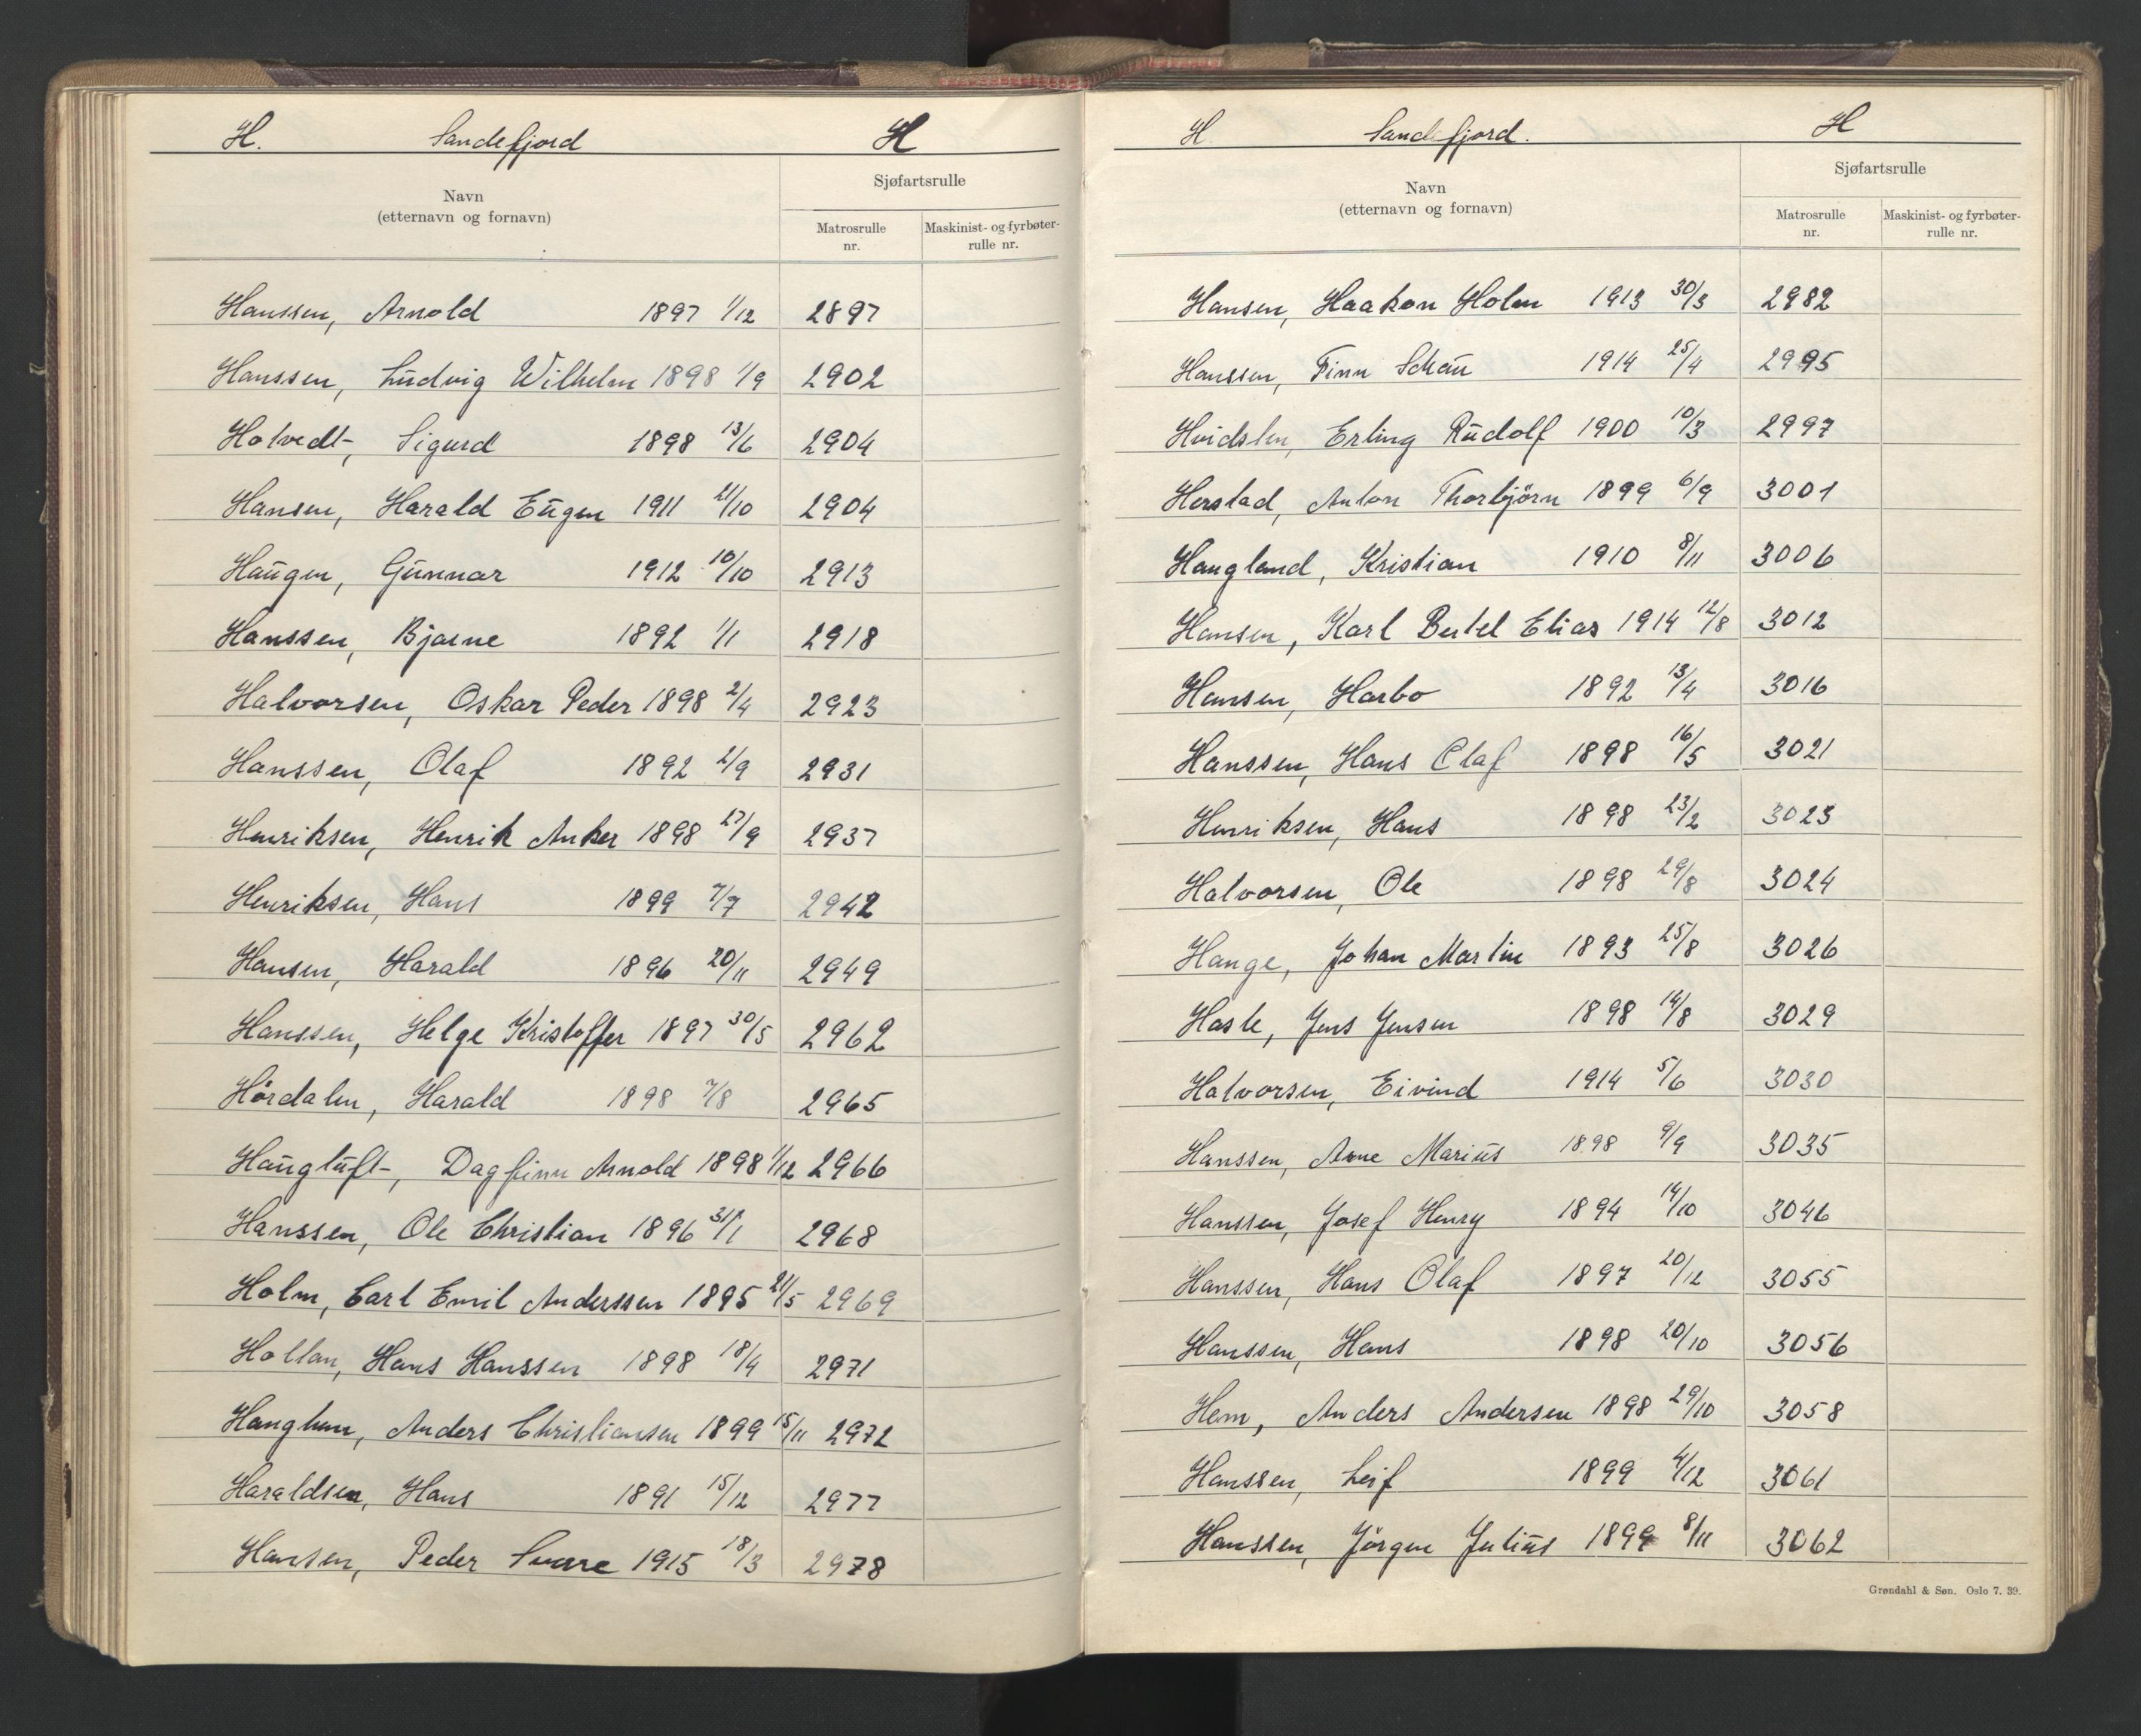 H. Sandefjord H
Navn
(etternavn og fornavn)
Sjøfartsrulle
Matrosrulle nr.
Maskinist- og fyrbøter-rulle nr.
Hanssen, Arnold 1897 1/12 2897
Hanssen, Ludvig Wilhelm 1898 1/9 2902
Hotvedt, Sigurd 1898 13/6 2904
Hansen, Harald Eugen 1911 21/10 2904
Haugen, Gunnar 1912 10/10 2913
Hanssen, Bjarne 1892 1/1 2918
Halvorsen, Oskar Peder 1898 2/4 2923
Hanssen, Olaf 1892 2/9 2931
Henriksen, Henrik Anker 1898 27/9 2937
Henriksen, Hans 1899 7/7 2942
Hansen, Harald 1896 20/11 2949
Hanssen, Helge Kristoffer 1897 30/5 2962
Hørdalen, Harald 1898 7/8 2965
Haugtuft, Dagfinn Arnold 1898 1/12 2966
Hanssen, Ole Christian 1896 31/1 2968
Holm, Carl Emil Anderssen 1895 21/5 2969
Hollan, Hans Hanssen 1898 18/4 2971
Anders Christiansen 1899 15/11 2972
Haraldsen, Hans 1891 15/12 2977
Hansen, Peder Sverre 1915 18/3 2978
H. Sandefjord. H
Navn
(etternavn og fornavn)
Sjøfartsrulle
Matrosrulle nr.
Maskinist- og fyrbøter-rulle nr.
Hansen, Haakon Holm 1913 30/3 2982
Hanssen, Finn Schau 1914 25/4 2995
Hvidsten, Erling Rudolf 1900 10/3 2997
Herstad, Anton Thorbjörn 1899 6/9 3001
Haugland, Kristian 1910 8/11 3006
Hansen, Karl Bertel Elias 1914 12/8 3012
Hansen, Harbo 1892 13/4 3016
Hanssen, Hans Olaf 1898 16/5 3021
Henriksen, Hans 1898 23/2 3023
Halvorsen, Ole 1898 29/8 3024
Hauge, Johan Martin 1893 25/8 3026
Hasle, Jens Jensen 1898 14/8 3029
Halvorsen, Eivind 1914 5/6 3030
Hanssen, Arne Marius 1898 9/9 3035
Hanssen, Josef Henry 1894 14/10 3046
Hanssen, Hans Olaf 1897 20/12 3055
Hanssen, Hans 1898 20/10 3056
Hem, Anders Andersen 1898 29/10 3058
Hanssen, Leif 1899 4/12 3061
Hanssen, Jörgen Julius 1899 8/11 3062
Grøndahl & Søn. Oslo 7. 39.